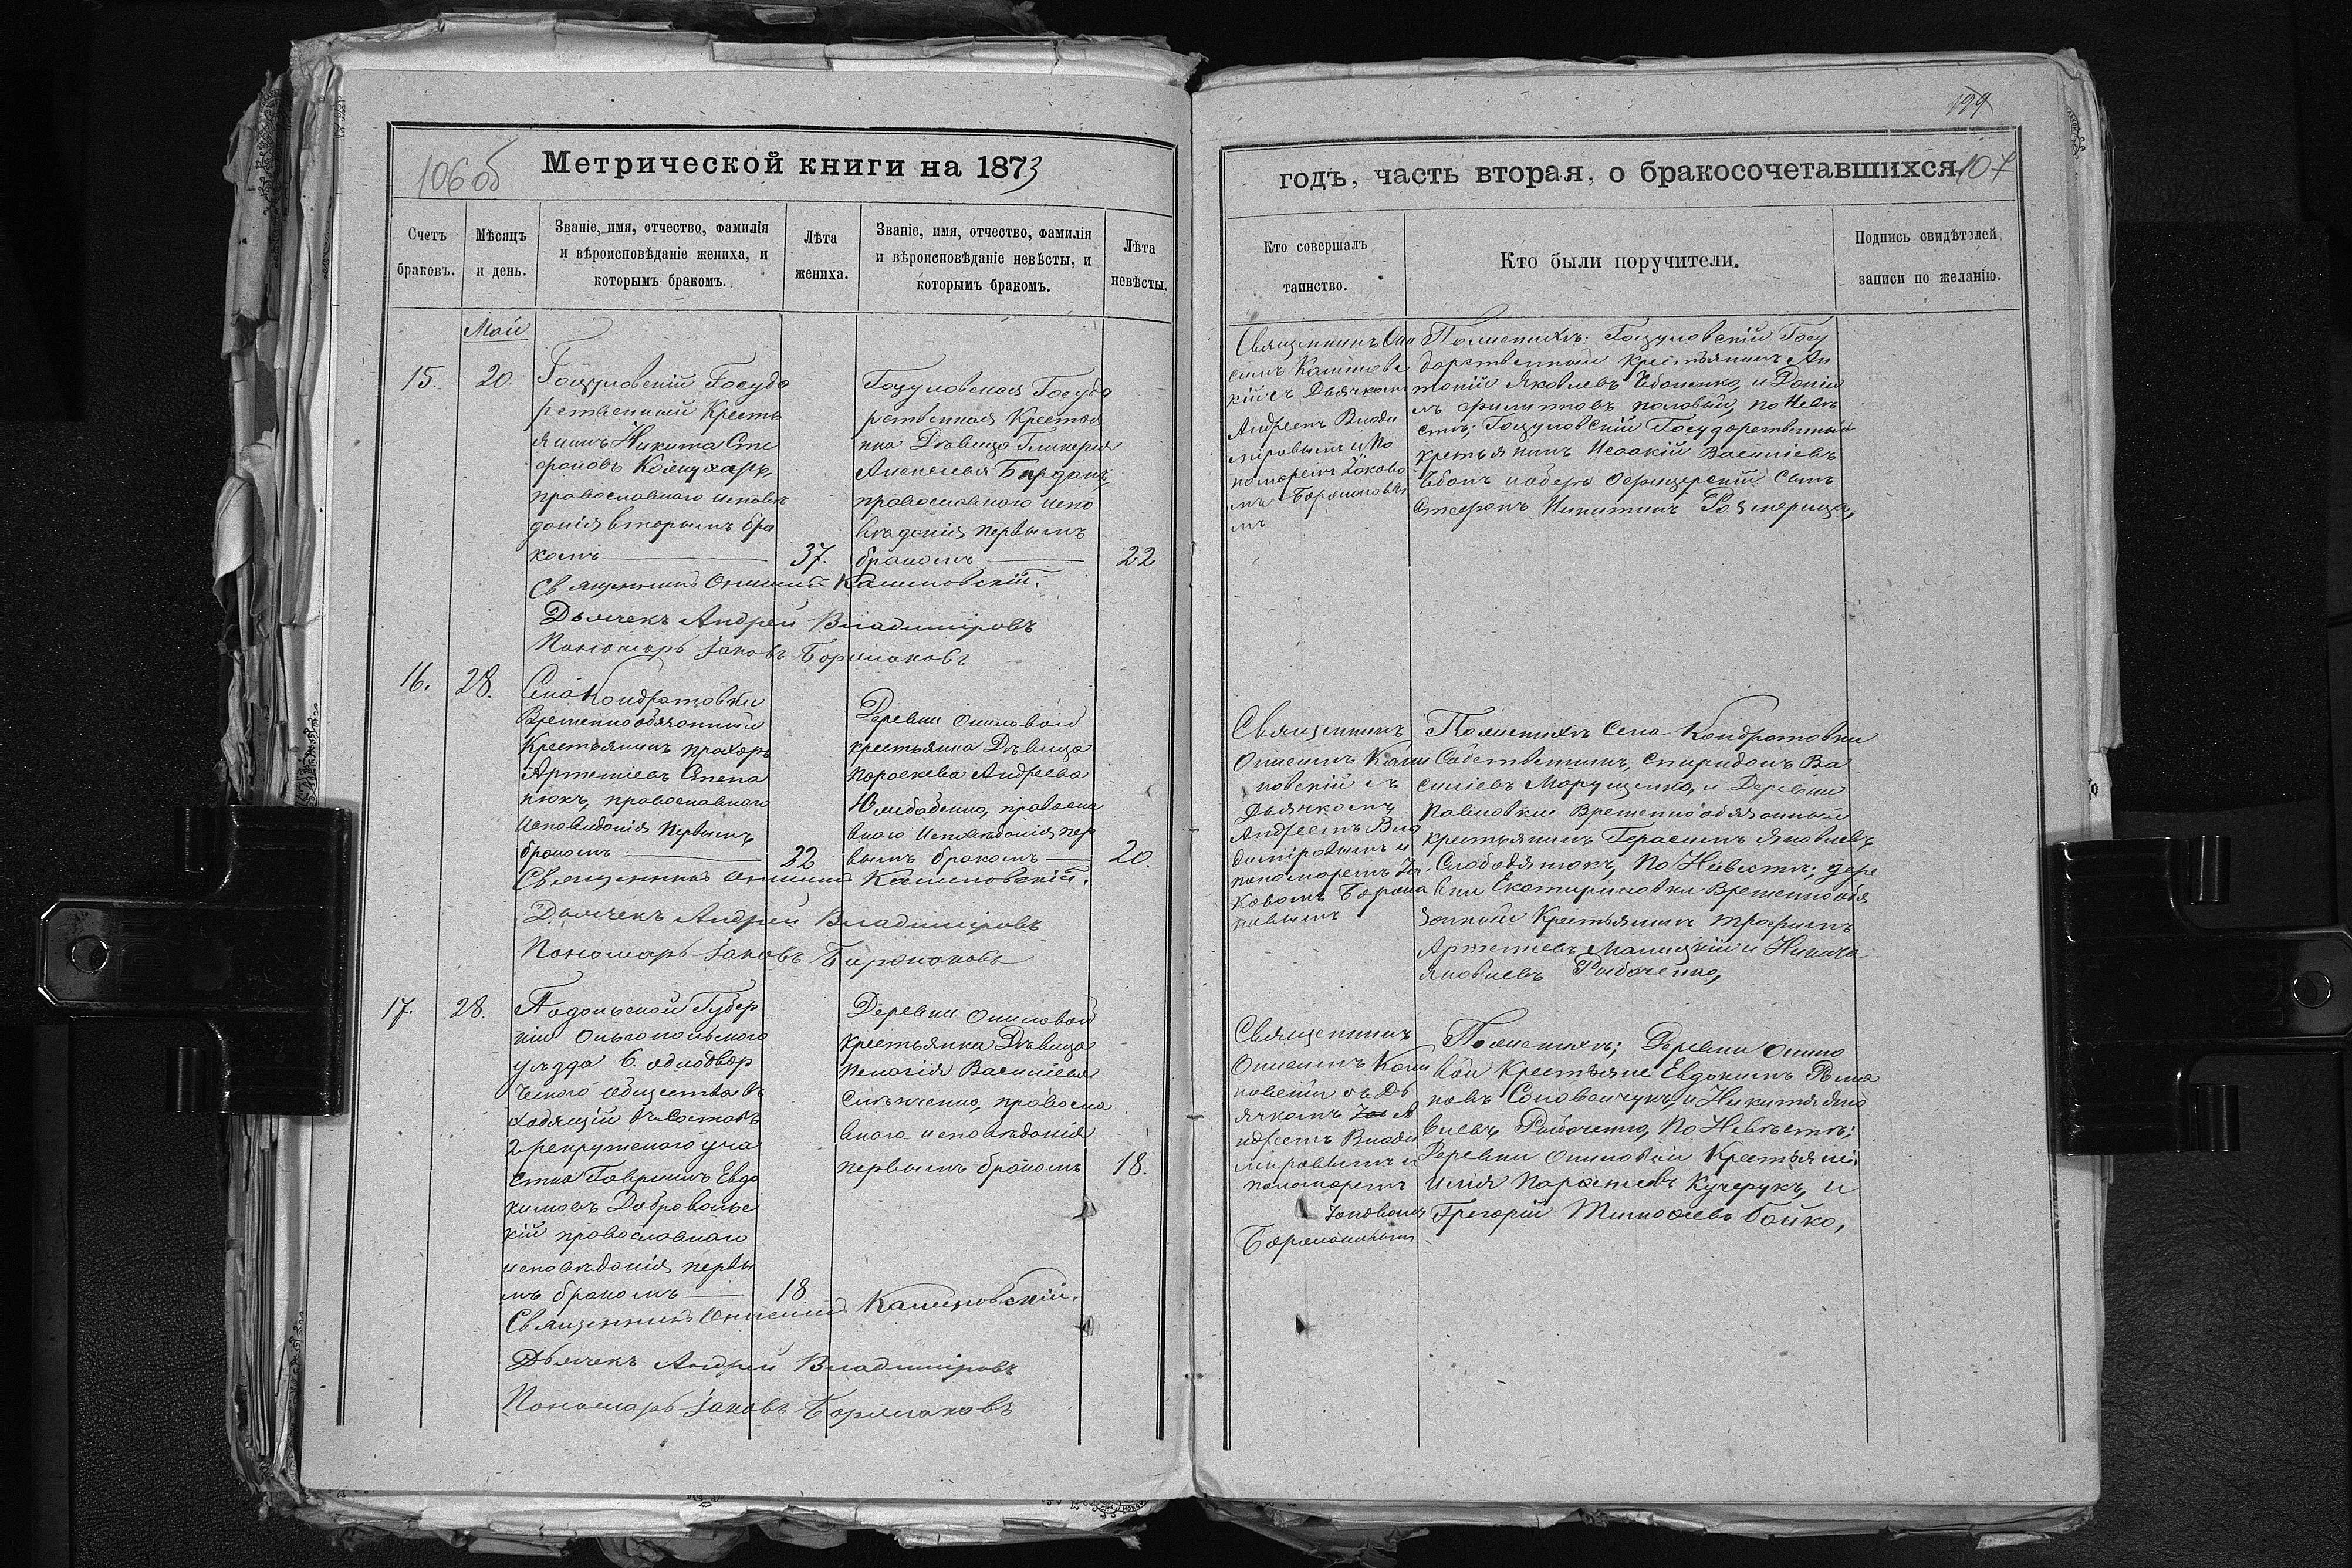 106 об
Метрической книги на 1873
Счетъ
браковъ.
Мѣсяцъ
и день.
Званіе, имя, отчество, фамилія
и вѣроисповѣданіе жениха, и
которымъ бракомъ.
Лѣта
жениха.
Званіе, имя, отчество, фамилія
и вѣроисповѣданіе невѣсты, и
которымъ бракомъ.
Лѣта
невѣсты.
Май
15.
20.
Гоцуловскій Госуда
рственный Кресть
янинъ Никита Сте
фановъ Кошухаръ,
православнаго исповѣ
данія вторымъ бра
комъ
37.
Гоцуловская Госуда
рственная Крестья
нка Дѣвица Гликерія
Алексѣева Барданъ,
православнаго испо
вѣданія первымъ
бракомъ
22
Священникъ Онисимъ Калиновскій.
Дьячекъ Андрей Владиміровъ
Пономарь Іаковъ Бармаковъ
16.
28.
Села Кондратовки
Временнообязанный
Крестьянинъ Прохоръ
Артеміевъ Степа
нюкъ, православнаго
Исповѣданія первымъ
бракомъ
22
Деревни Ониловой
крестьянка Дѣвица
Параскева Андреева
православ
наго Исповѣданія пер
вымъ бракомъ
20.
Священникъ Онисимъ Калиновскій.
Дьячекъ Андрей Владиміровъ
Пономарь Іаковъ Бармаковъ
17.
28.
Подольской Губер
ніи Ольгопольскаго
уѣзда б. однодвор
ческого общества в
ходящій въ составъ
2 рекрутскаго уча
стка Гавріилъ Евдо
кимовъ Добровольс
кій православнаго
исповѣданія первы
мъ бракомъ
18
Деревни Ониловой
крестьянка Дѣвица
Пелагія Василіева
правосла
внаго исповѣданія
первымъ бракомъ
18.
Священникъ Онисимъ Калиновскій.
Дьячекъ Андрей Владиміровъ
Пономарь Іаковъ Бармаковъ
199
годъ, часть вторая, о бракосочетавшихся.
107
Кто совершалъ
таинство.
Кто были поручители.
Подпись свидѣтелей
записи по желанію.
Священникъ Они
симъ Калиновс
кій съ Дьячкомъ
Андреемъ Влади
міровымъ и По
номаремъ Іаково
мъ Бармаковы
мъ
По женихѣ: Гоцуловскій Госу
дарственный крестьянинъ Ан
тоній Яковлевъ и Данiи
лъ Филиповъ половый, по Невѣ
стѣ; Гоцуловскій Государственный
крестьянинъ Исаакій Василіевъ
Офицерскій Сынъ
Стефанъ Никитинъ
Священникъ
Онисимъ Кали
новскій съ
Дьячкомъ
Андреемъ Вла
диміровымъ и
пономаремъ Іа
ковомъ Барма
ковымъ
По женихѣ Села Кондратовки
Собственникъ, Спиридонъ Ва
силіевъ Марущенко, и Деревни
Павловки Временнообязанный
крестьянинъ Герасимъ Яковлевъ
Слободянюкъ, По Невѣстѣ; дере
вни Екатириновки Временнообя
занный Крестьянинъ Трофимъ
Артемьевъ Малицкій и Никита
Яковлевъ Рыбаченко,
Священникъ
Онисимъ Кали
новскій съ Дь
ячкомъ А
ндреемъ Влади
міровымъ и
пономаремъ
Іаковомъ
Бармаковымъ
По женихѣ; Деревни Онило
вой Крестьяне Евдокимъ Рома
новъ Соловейчукъ, и Никита Яко
влевъ Рыбаченко, По Невѣстѣ;
Деревни Ониловой Крестьяне
Илія Кучерукъ, и
Грегорій Тимофеевъ Бойко,